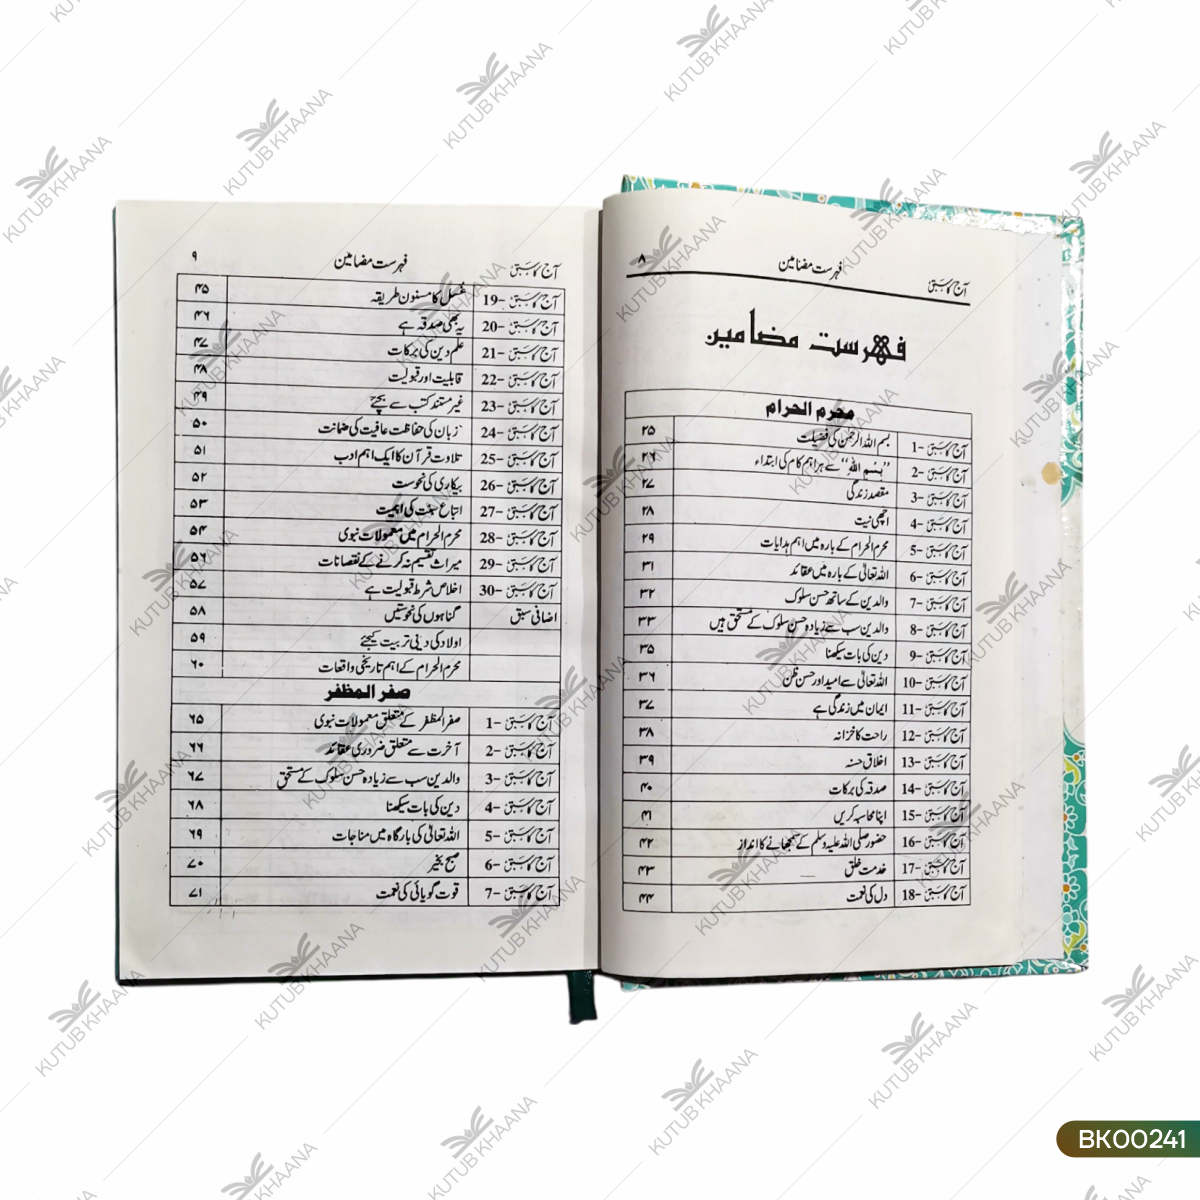 آج کا سبق فہرست مضامین ۸
فہرست مضامین
محرم الحرام
آج کا سبق -1 بسم اللہ الرحمٰن کی فضیلت ۲۵
آج کا سبق -2 "بِسْمِ اللّٰهِ" سے ہر اہم کام کی ابتداء ۲۶
آج کا سبق -3 مقصد زندگی ۲۷
آج کا سبق -4 اچھی نیت ۲۸
آج کا سبق -5 محرم الحرام کے بارہ میں اہم ہدایات ۲۹
آج کا سبق -6 اللہ تعالیٰ کے بارہ میں عقائد ۳۱
آج کا سبق -7 والدین کے ساتھ حسن سلوک ۳۲
آج کا سبق -8 والدین سب سے زیادہ حسن سلوک کے مستحق ہیں ۳۳
آج کا سبق -9 دین کی بات سیکھنا ۳۵
آج کا سبق -10 اللہ تعالیٰ سے امید اور حسن ظن ۳۶
آج کا سبق -11 ایمان میں زندگی ہے ۳۷
آج کا سبق -12 راحت کا خزانہ ۳۸
آج کا سبق -13 اخلاق حسنہ ۳۹
آج کا سبق -14 صدقہ کی برکات ۴۰
آج کا سبق -15 اپنا محاسبہ کریں ۴۱
آج کا سبق -16 حضور صلی اللہ علیہ وسلم کے سمجھانے کا انداز ۴۲
آج کا سبق -17 خدمت خلق ۴۳
آج کا سبق -18 دل کی نعمت ۴۴
آج کا سبق فہرست مضامین ۹
آج کا سبق -19 غسل کا مسنون طریقہ ۴۵
آج کا سبق -20 یہ بھی صدقہ ہے ۴۶
آج کا سبق -21 علم دین کی برکات ۴۷
آج کا سبق -22 قابلیت اور قبولیت ۴۸
آج کا سبق -23 غیر مستند کتب سے بچئے ۴۹
آج کا سبق -24 زبان کی حفاظت عافیت کی ضمانت ۵۰
آج کا سبق -25 تلاوت قرآن کا ایک اہم ادب ۵۱
آج کا سبق -26 بیکاری کی نحوست ۵۲
آج کا سبق -27 اتباع سنت کی اہمیت ۵۳
آج کا سبق -28 محرم الحرام میں معمولات نبوی ۵۴
آج کا سبق -29 میراث تقسیم نہ کرنے کے نقصانات ۵۶
آج کا سبق -30 اخلاص شرط قبولیت ہے ۵۷
اضافی سبق گناہوں کی نحوستیں ۵۸
اولاد کی دینی تربیت کیجئے ۵۹
محرم الحرام کے اہم تاریخی واقعات ۶۰
صفر المظفر
آج کا سبق -1 صفر المظفر کے متعلق معمولات نبوی ۶۵
آج کا سبق -2 آخرت سے متعلق ضروری عقائد ۶۶
آج کا سبق -3 والدین سب سے زیادہ حسن سلوک کے مستحق ۶۷
آج کا سبق -4 دین کی بات سیکھنا ۶۸
آج کا سبق -5 اللہ تعالیٰ کی بارگاہ میں مناجات ۶۹
آج کا سبق -6 صبح بخیر ۷۰
آج کا سبق -7 قوت گویائی کی نعمت ۷۱
BK00241
KUTUB KHAANA